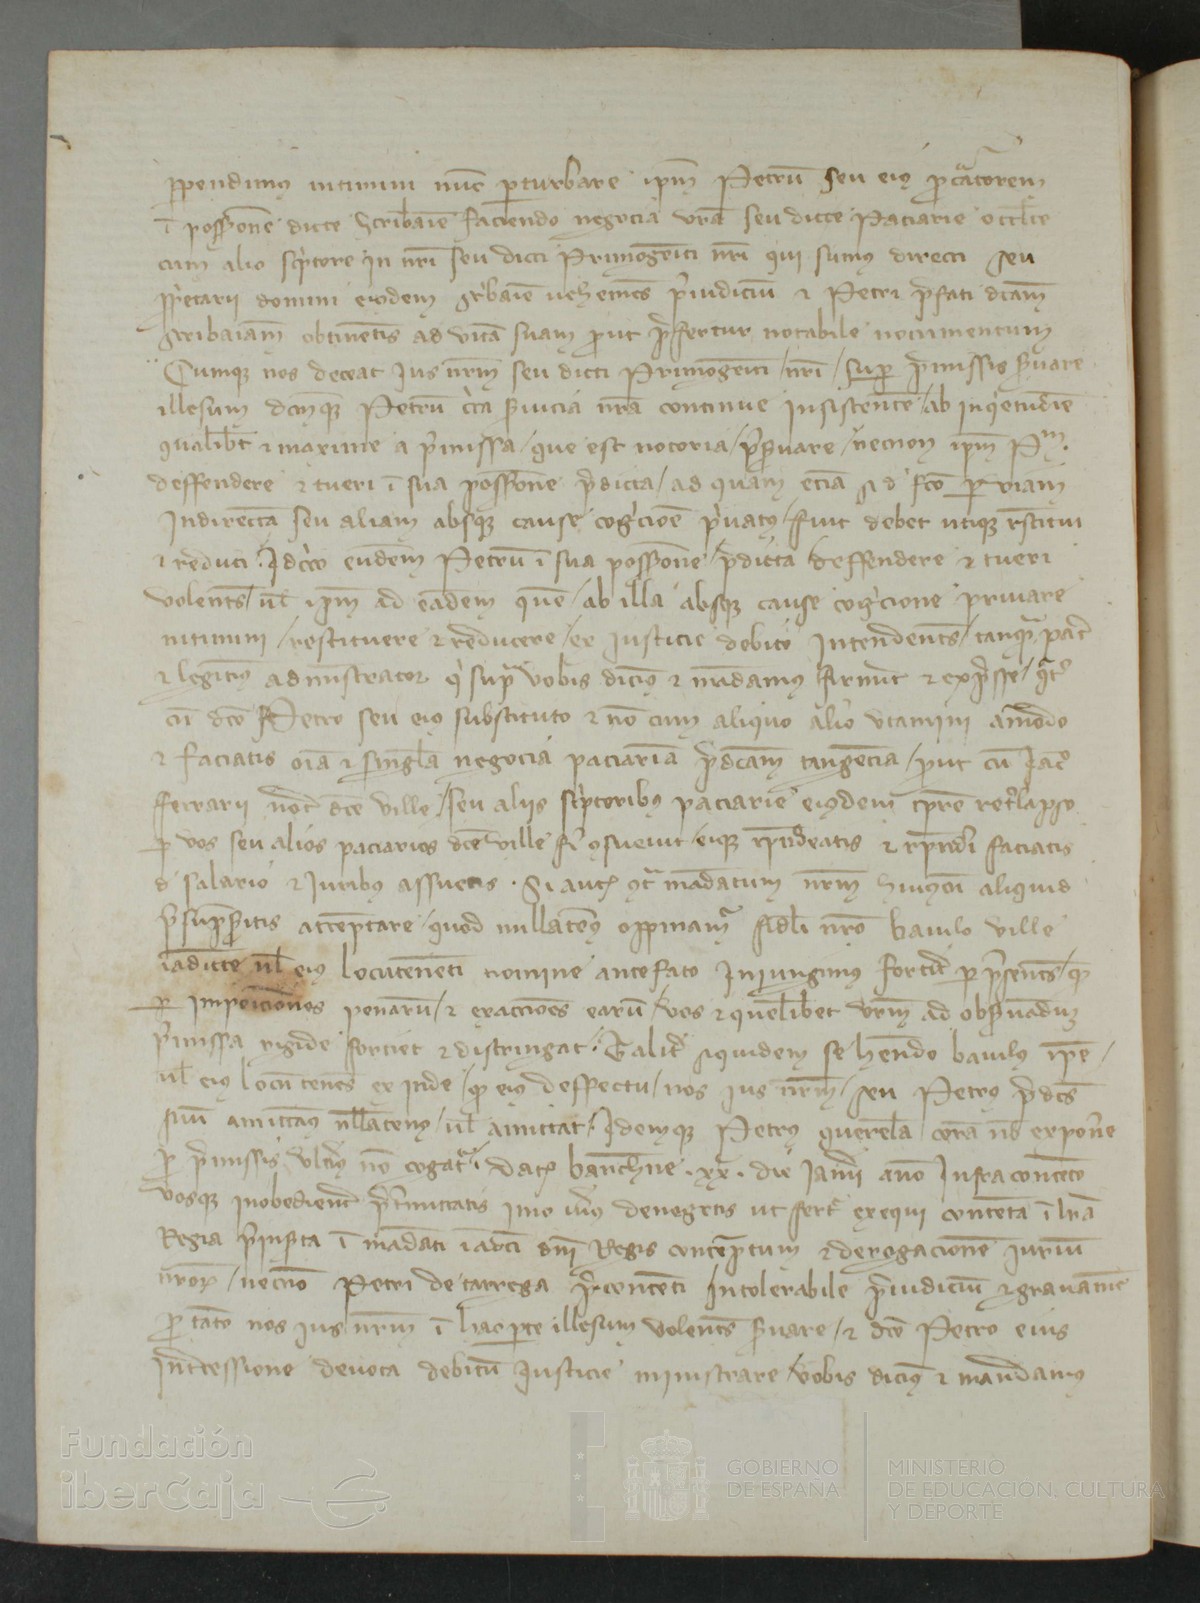 perpendimus nitimini nunc perturbare ipm Petru seu eius procuratorem
i possone dicte scribaie faciendo negocia vra seu dicte Paciarie
cum alio scriptore in nri seu dicti Primogeniti nri qui sumus directi seu
domini eiusdem scribaie prejudiciu et Petri prefati dcam
scribaiam obtinentis ad vita suam prout prefertur notabile nocumentum
Cumque nos deceat ius nrm seu dicti Primogeniti nri super premissis servare
illesum dcmque Petru circa servicia nra continue insistente ab inquietudie
qualibet et maxime a premissa que est notoria preservare necnon ipm Pm
deffendere et tueri i sua possone predicta ad quam etia si de fco per viam
indirecta seu aliam absque cause cognicioe privatus fuit debet utique restitui
et reduci Idcirco eundem Petru i sua possone predicta deffendere et tueri
volentes vel ipm ad eadem que ab illa absque cause cognicione privare
nitimini restituere et reducere ex justicie debito intendentes tanquam pater
et legitimus administrator vobis dicimus et mandamus firmiter et expresse
cu dco Petro seu eius substituto et no cum aliquo alio utamini amodo
et faciatis oia et singula negocia paciaria predcam tangencia prout cu Jaco
ferrarii not dce ville seu aliis scriptoribus paciarie eiusdem tpre retrolapso
per vos seu alios paciarios dce ville fi consuevit eique respondeatis et responderi faciatis
de salario et iuribus assuetis Si autem contra mandatum nrm huiusmodi aliquid
presumpseritis acceptare quod nullatenus oppinamur fideli nro baiulo ville
iadicte vel eius locutenenti nomine antefato iniungimus per presentes
per imposiciones penaru et exacciones earu vos et quelibet vrm ad observandum
premissa rigide forciet et distringat Taliter siquidem se hendo baiulus ipe
vel eius locutenens ex inde deffectu nos ius nrm seu Petrus predcs
suu amittamus nullatenus vel amittat Idemque Petrus querela cora nb expone
pro premissis ulterius no cogatur Dat Barchne xx die Januarii ano infra contento
vosque inobedienter pretermittatis imo verius denegetis ut fertur exequi contenta i lra
Regia preinserta i mandati iadcti dni Regis contemptum et derogacione iuriu
nrorum necno Petri de tarrega precontenti intolerabile prejudiciu et gravamen
pro tanto nos ius nrm i hac parte illesum volentes servare et dco Petro eius
intercessione devota debitu justicie ministrare vobis dicimus et mandamus
Fundación
iberCaja
GOBIERNO
DE ESPAÑA
MINISTERIO
DE EDUCACIÓN, CULTURA
Y DEPORTE